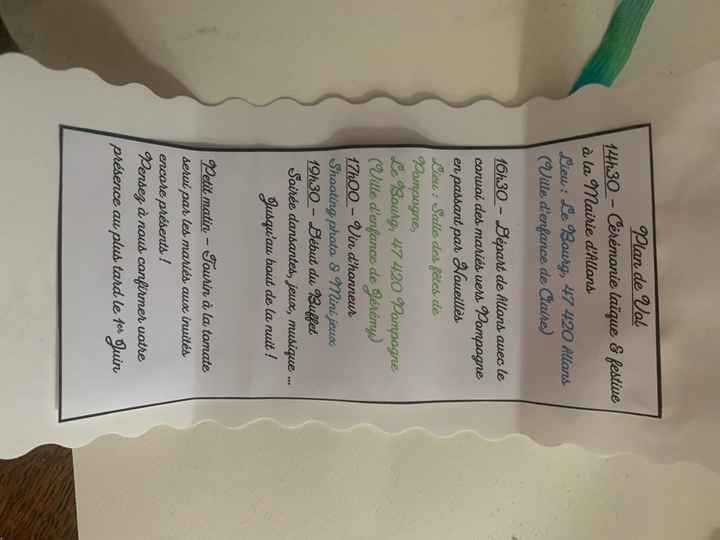 Plan de Vol
14h30 - Cérémonie laïque & festive
à la Mairie d'Allons
Lieu : Le Bourg, 47 420 Allons
(Ville d'enfance de Claire)
16h30 - Départ de Allons avec le
convoi des mariés vers Pompogne
en passant par Houeillès
Lieu : Salle des fêtes de
Pompogne,
Le Bourg, 47 420 Pompogne
(Ville d'enfance de Jérémy)
17h00 - Vin d'honneur
Shooting photo & Mini jeux
19h30 - Début du Buffet
Soirée dansantes, jeux, musique ...
Jusqu'au bout de la nuit !
Petit matin - Tourin à la tomate
serai par les mariés aux invités
encore présents !
Pensez à nous confirmer votre
présence au plus tard le 1er Juin